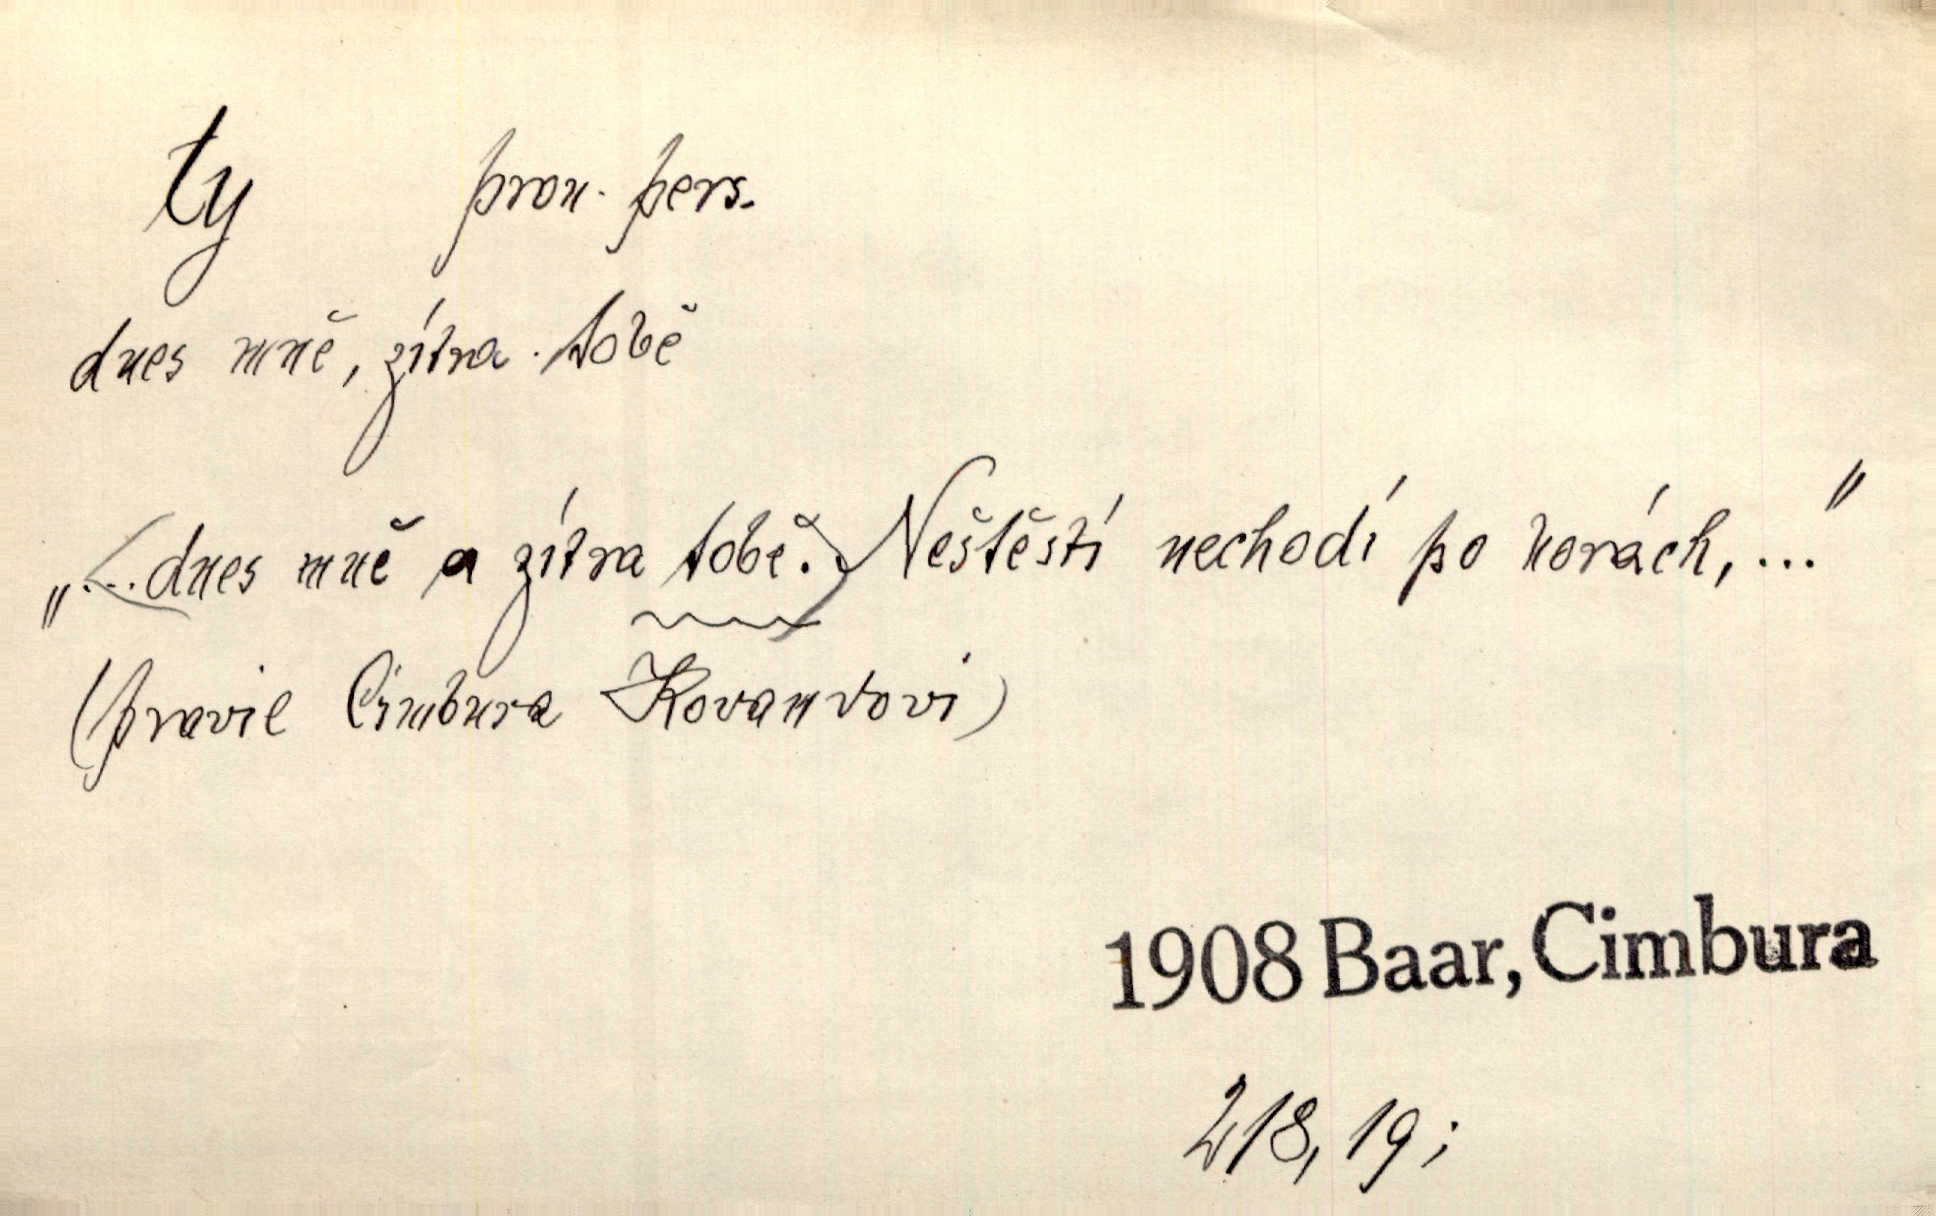 ty pron. pers.
dnes mně, zítra tobě
„... dnes mně a zítra tobě. Neštěstí nechodí po horách, ..."
(pravil Cimbura Kovandovi)
1908 Baar, Cimbura
218, 19;